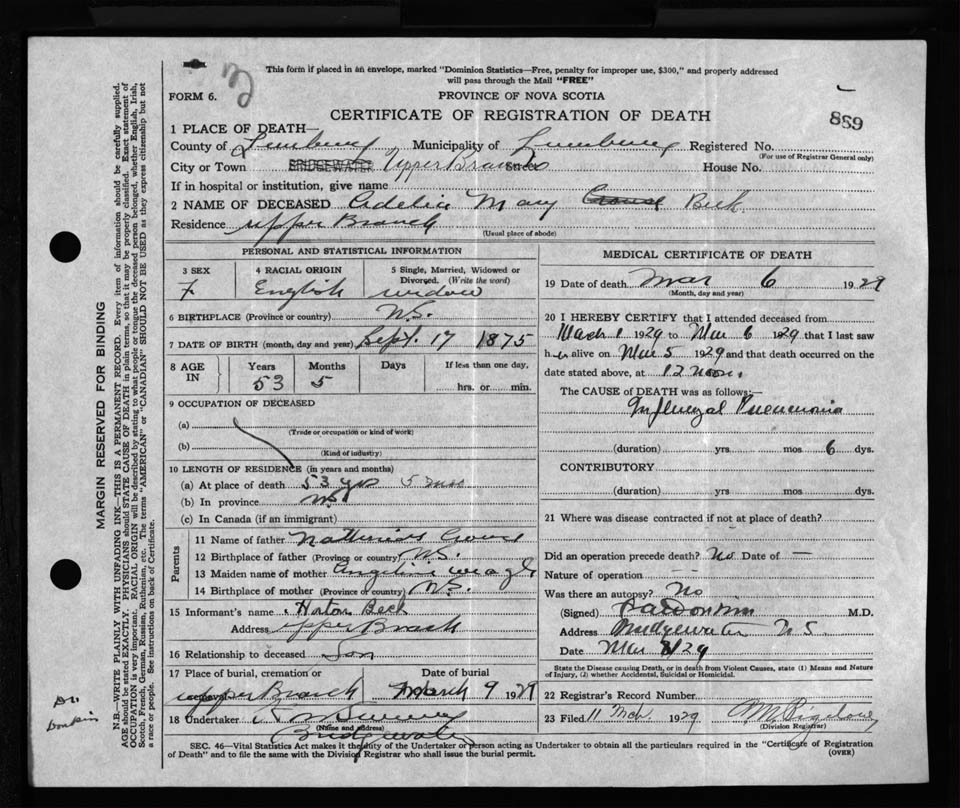 This form if placed in an envelope, marked "Dominion Statistics—Free, penalty for improper use, $300," and properly addressed
will pass through the Mail "FREE"
FORM 6.
PROVINCE OF NOVA SCOTIA
889
CERTIFICATE OF REGISTRATION OF DEATH
1 PLACE OF DEATH—
County of Lunenburg Municipality of Lunenburg Registered No.
(For use of Registrar General only)
City or Town BRIDGEWATER Upper Branch Street House No.
If in hospital or institution, give name
2 NAME OF DECEASED Adelia Mary Crouse Beck
Residence Upper Branch
(Usual place of abode)
PERSONAL AND STATISTICAL INFORMATION
3 SEX 4 RACIAL ORIGIN 5 Single, Married, Widowed or Divorced. (Write the word)
F English widow
6 BIRTHPLACE (Province or country) N.S.
7 DATE OF BIRTH (month, day and year) Sept. 17 1875
8 AGE IN Years Months Days If less than one day,
53 5 hrs. or min.
9 OCCUPATION OF DECEASED
(a)
(Trade or occupation or kind of work)
(b)
(Kind of industry)
10 LENGTH OF RESIDENCE (in years and months)
(a) At place of death 53 yrs 5 mos
(b) In province N.S.
(c) In Canada (if an immigrant)
Parents
11 Name of father
12 Birthplace of father (Province or country) N.S.
13 Maiden name of mother Angeline
14 Birthplace of mother (Province or country) N.S.
15 Informant's name Horton Beck
Address Upper Branch
16 Relationship to deceased Son
17 Place of burial, cremation or Date of burial
Upper Branch March 9 1929
18 Undertaker
(Name and address)
Bridgewater
MEDICAL CERTIFICATE OF DEATH
19 Date of death Mar 6 1929
(Month, day and year)
20 I HEREBY CERTIFY that I attended deceased from
March 1 1929 to Mar 6 1929 that I last saw
her alive on Mar 5 1929 and that death occurred on the
date stated above, at 12 noon.
The CAUSE OF DEATH was as follows:
Influenzal Pneumonia
(duration) yrs mos 6 dys.
CONTRIBUTORY
(duration) yrs. mos. dys.
21 Where was disease contracted if not at place of death?
Did an operation precede death? No Date of —
Nature of operation —
Was there an autopsy? No
(Signed) M.D.
Address Bridgewater N.S.
Date Mar 8/29
State the Disease causing Death, or in death from Violent Causes, state (1) Means and Nature
of Injury, (2) whether Accidental, Suicidal or Homicidal.
22 Registrar's Record Number
23 Filed 11 Mch. 1929
(Division Registrar)
SEC. 46—Vital Statistics Act makes it the duty of the Undertaker or person acting as Undertaker to obtain all the particulars required in the "Certificate of Registration
of Death" and to file the same with the Division Registrar who shall issue the burial permit.
(OVER)
MARGIN RESERVED FOR BINDING
N.B.—WRITE PLAINLY WITH UNFADING INK—THIS IS A PERMANENT RECORD. Every item of information should be carefully supplied.
AGE should be stated EXACTLY. PHYSICIANS should STATE CAUSE OF DEATH in plain terms, so that it may be properly classified. Exact statement of
OCCUPATION is very important. RACIAL ORIGIN will be described by stating to what people or tongue the deceased person belonged, whether English, Irish,
Scotch, French, German, Russian, Ruthenian, etc. The terms "AMERICAN" or "CANADIAN" SHOULD NOT BE USED as they express citizenship but not
a race or people. See instructions on back of Certificate.